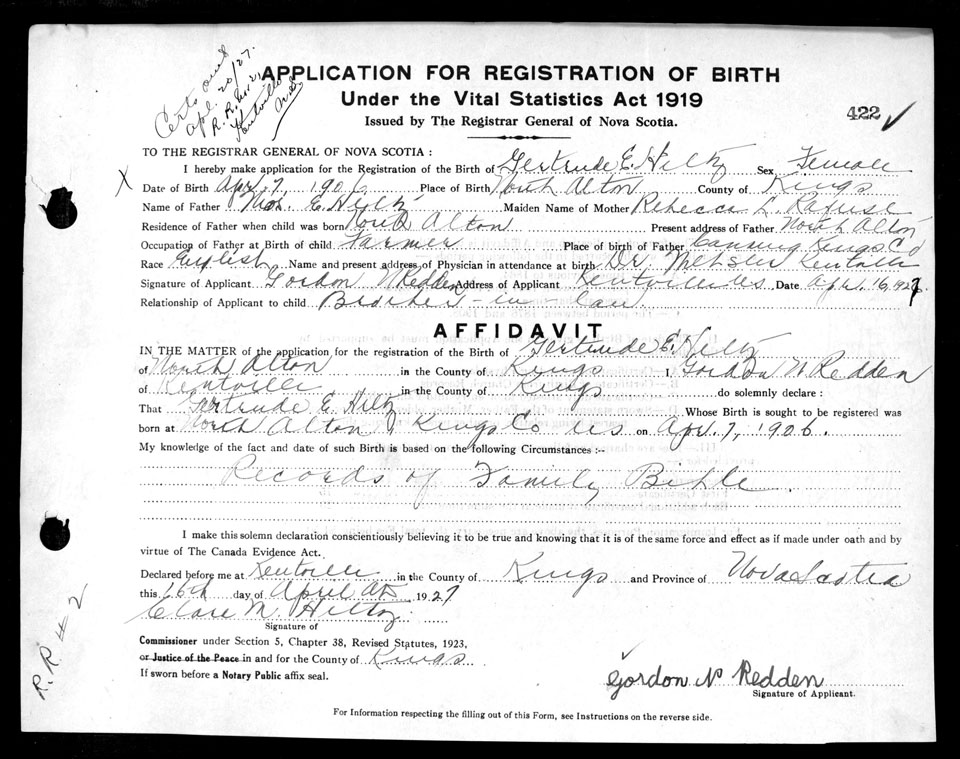 Certs out
apl. 20/27.
R. R. No 2,
Kentville
N.S.
APPLICATION FOR REGISTRATION OF BIRTH
Under the Vital Statistics Act 1919
Issued by The Registrar General of Nova Scotia.
422 ✓
TO THE REGISTRAR GENERAL OF NOVA SCOTIA :
I hereby make application for the Registration of the Birth of Gertrude E. Hiltz Sex Female
X Date of Birth Apr. 7, 1906 Place of Birth North Alton County of Kings
Name of Father Wm. E. Hiltz Maiden Name of Mother Rebecca L. Rafuse
Residence of Father when child was born North Alton Present address of Father North Alton
Occupation of Father at Birth of child Farmer Place of birth of Father Canning Kings Co
Race English Name and present address of Physician in attendance at birth Dr. Webster Kentville
Signature of Applicant Gordon N Redden Address of Applicant Kentville NS Date Apr. 16, 1927.
Relationship of Applicant to child Brother-in-law
AFFIDAVIT
IN THE MATTER of the application for the registration of the Birth of Gertrude E. Hiltz
of North Alton in the County of Kings I, Gordon N Redden
of Kentville in the County of Kings do solemnly declare :
That Gertrude E. Hiltz Whose Birth is sought to be registered was
born at North Alton, Kings Co NS on Apr. 7, 1906.
My knowledge of the fact and date of such Birth is based on the following Circumstances :-
Records of Family Bible.
I make this solemn declaration conscientiously believing it to be true and knowing that it is of the same force and effect as if made under oath and by
virtue of The Canada Evidence Act.
Declared before me at Kentville in the County of Kings and Province of Nova Scotia
this 16th day of April AD 1927
Clare M. Hiltz
Signature of
Commissioner under Section 5, Chapter 38, Revised Statutes, 1923,
or Justice of the Peace in and for the County of Kings
If sworn before a Notary Public affix seal.
R.R # 2
Gordon N Redden
Signature of Applicant.
For Information respecting the filling out of this Form, see Instructions on the reverse side.